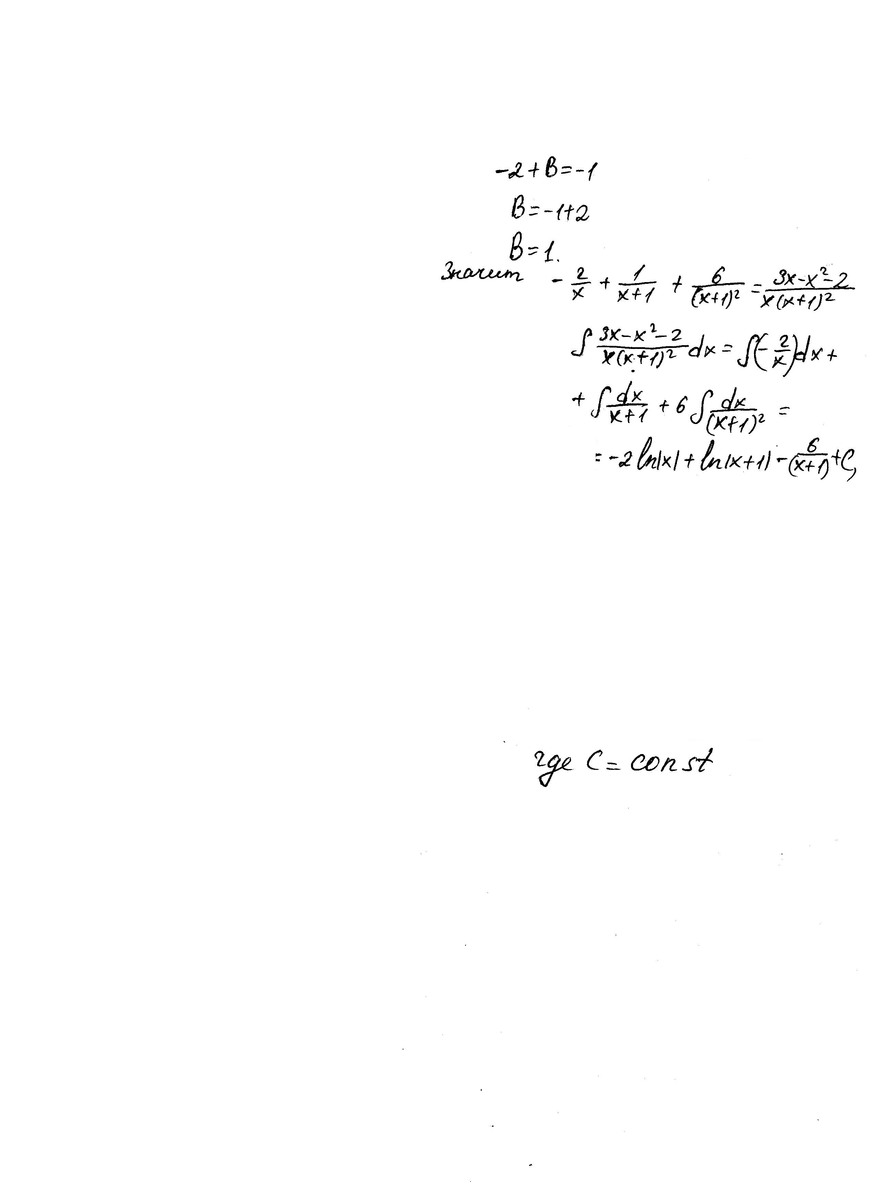 -2+B=-1
B=-1+2
B=1.
Значит -2/x + 1/(x+1) + 6/(x+1)² = (3x-x²-2)/(x(x+1)²)
∫ (3x-x²-2)/(x(x+1)²) dx = ∫(-2/x)dx +
+ ∫ dx/(x+1) + 6 ∫ dx/(x+1)² =
= -2 ln|x| + ln|x+1| - 6/(x+1) + C,
где C = const